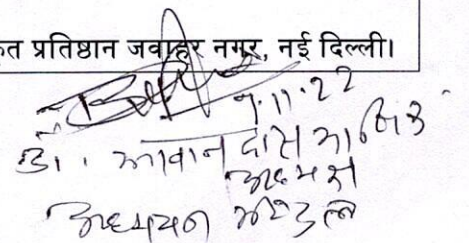 कृत प्रतिष्ठान जवाहर नगर, नई दिल्ली।
डॉ. भगवान दास
अध्यक्ष
अध्ययन मण्डल